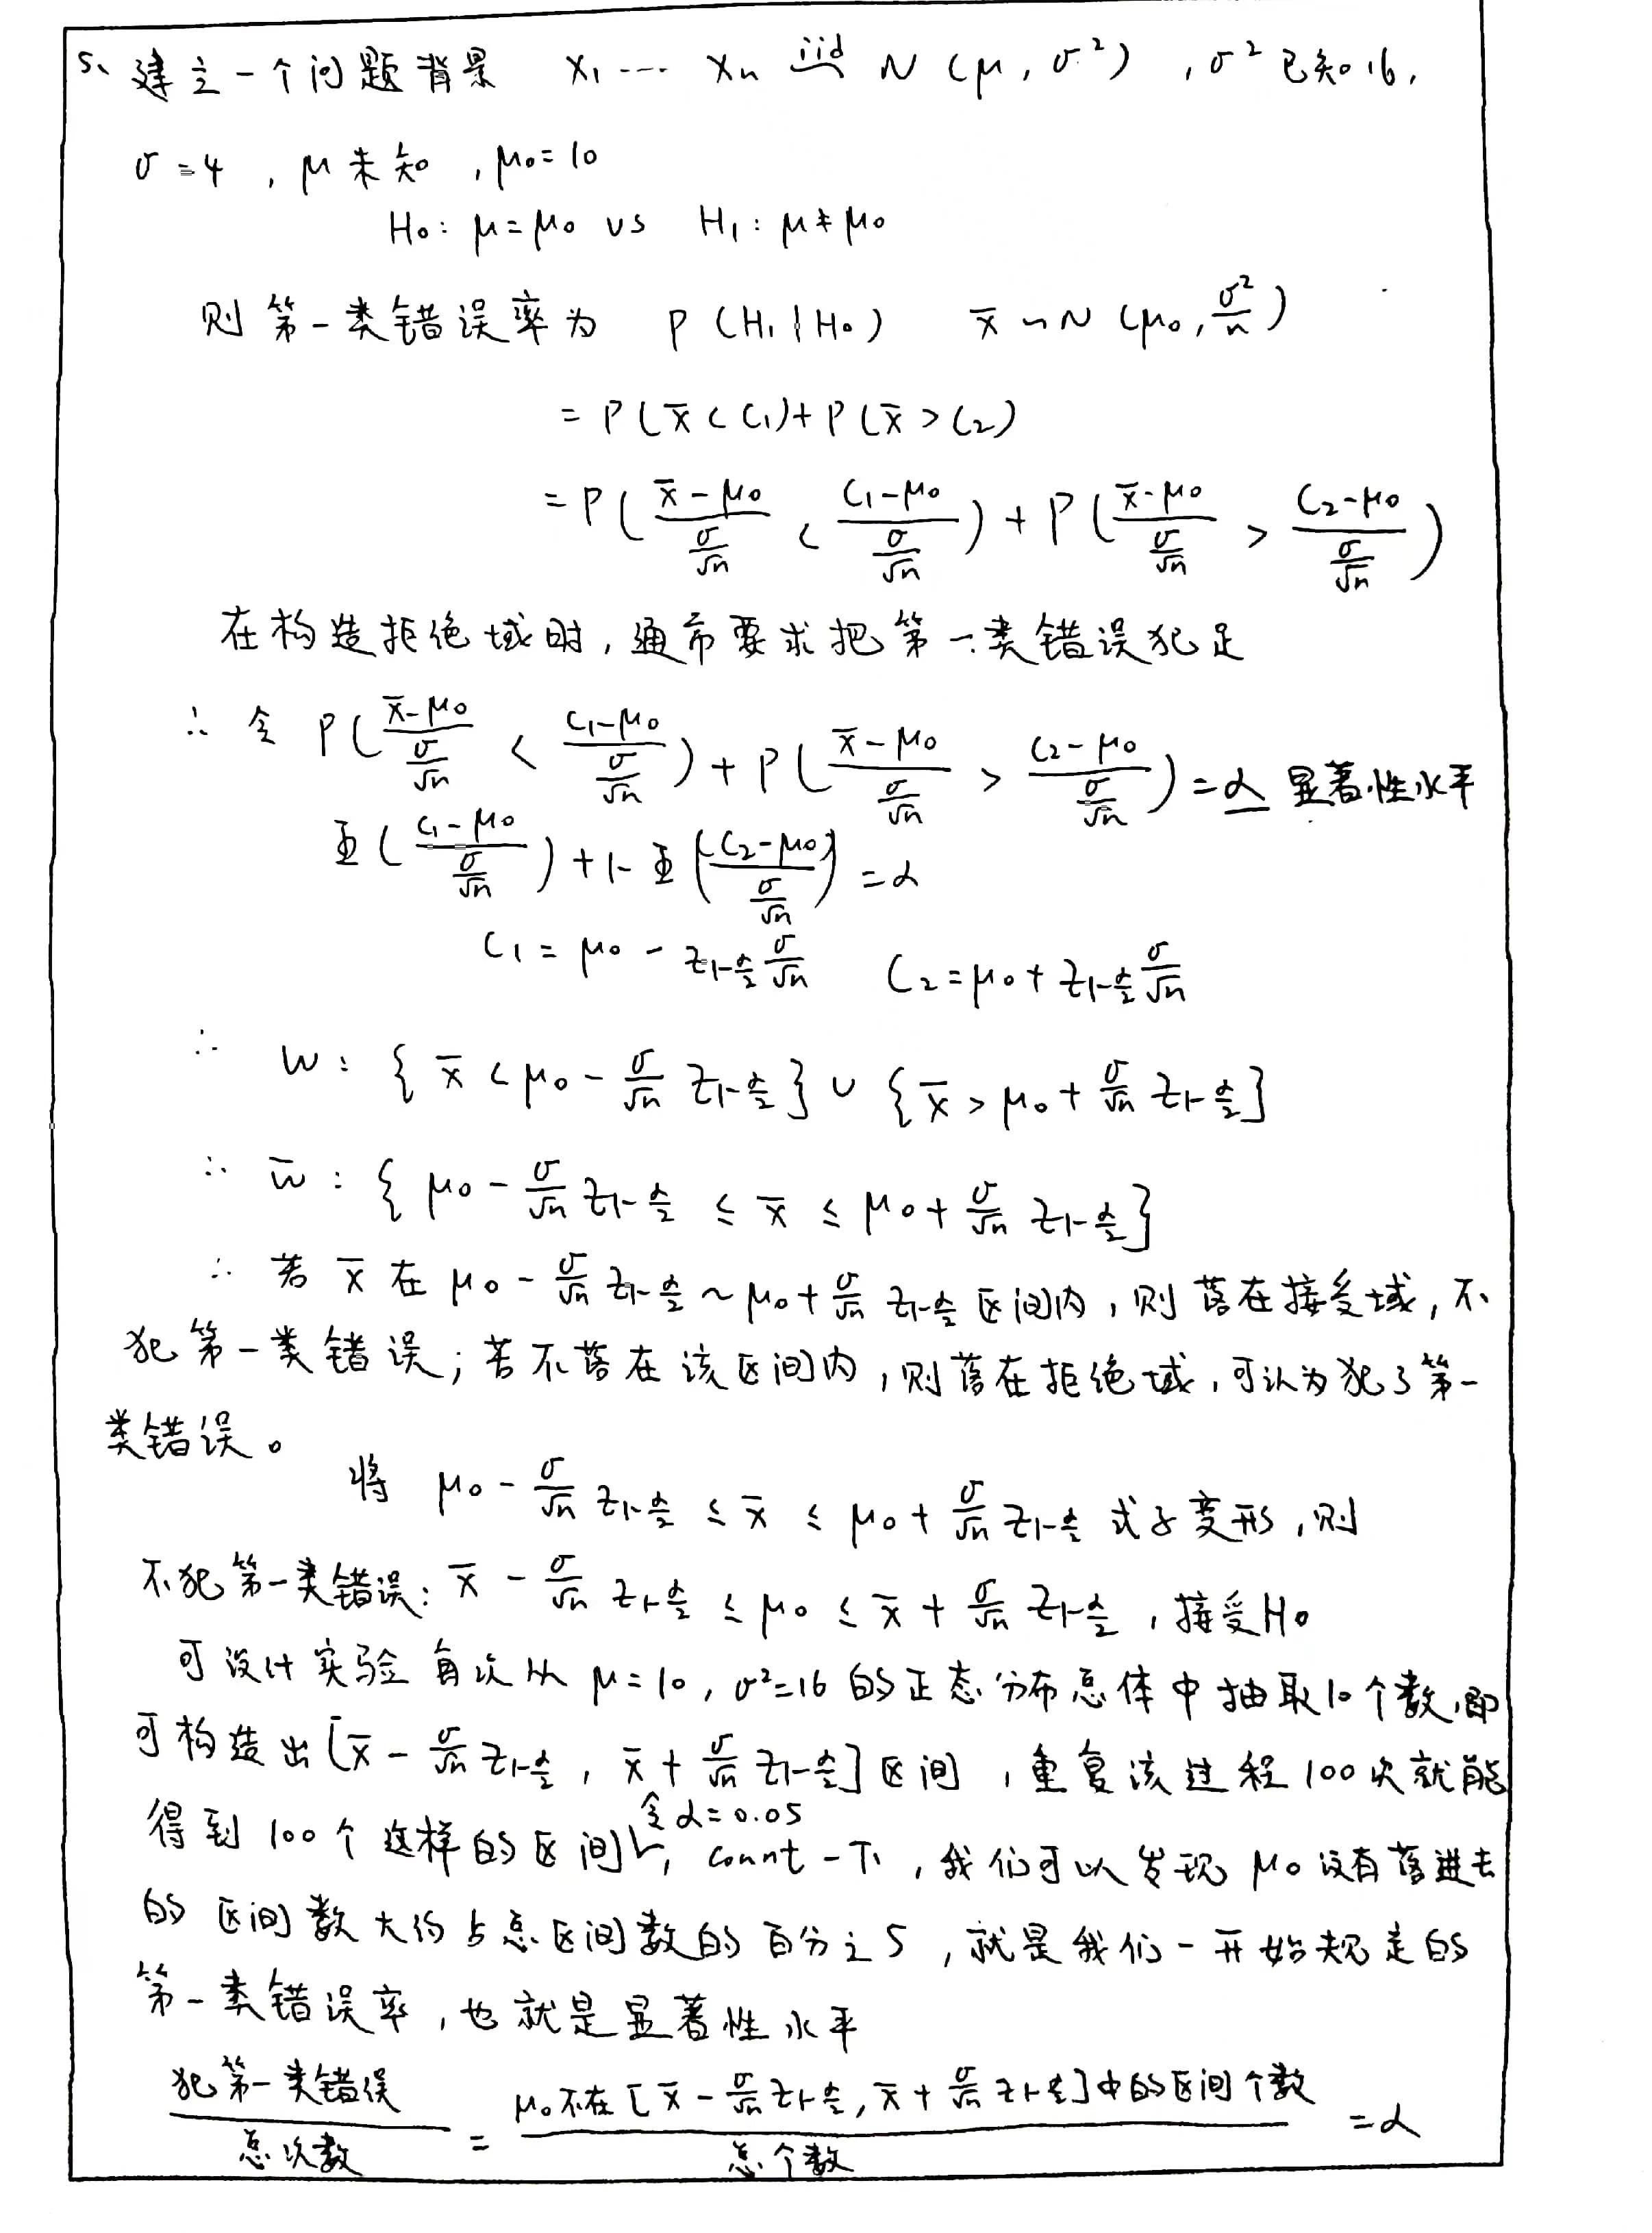 5、建立一个问题背景 X₁ ---- Xₙ iid~ N(μ, σ²) , σ²已知16,
σ=4 , μ未知 , μ₀=10
H₀: μ=μ₀ vs H₁: μ≠μ₀
则第一类错误率为 P(H₁|H₀) x̄ ~ N(μ₀, σ²/n)
= P(x̄<C₁)+P(x̄>C₂)
= P((x̄-μ₀)/(σ/√n) < (C₁-μ₀)/(σ/√n)) + P((x̄-μ₀)/(σ/√n) > (C₂-μ₀)/(σ/√n))
在构造拒绝域时,通常要求把第一类错误犯足
∴ 令 P((x̄-μ₀)/(σ/√n) < (C₁-μ₀)/(σ/√n)) + P((x̄-μ₀)/(σ/√n) > (C₂-μ₀)/(σ/√n)) = α 显著性水平
Φ((C₁-μ₀)/(σ/√n)) + 1-Φ((C₂-μ₀)/(σ/√n)) = α
C₁ = μ₀ - z_{1-α/2} σ/√n C₂ = μ₀ + z_{1-α/2} σ/√n
∴ W: { x̄ < μ₀ - σ/√n z_{1-α/2} } ∪ { x̄ > μ₀ + σ/√n z_{1-α/2} }
∴ W̄: { μ₀ - σ/√n z_{1-α/2} ≤ x̄ ≤ μ₀ + σ/√n z_{1-α/2} }
∴ 若 x̄ 在 μ₀ - σ/√n z_{1-α/2} ~ μ₀ + σ/√n z_{1-α/2} 区间内,则落在接受域,不
犯第一类错误;若不落在该区间内,则落在拒绝域,可认为犯了第一
类错误。
将 μ₀ - σ/√n z_{1-α/2} ≤ x̄ ≤ μ₀ + σ/√n z_{1-α/2} 式子变形,则
不犯第一类错误: x̄ - σ/√n z_{1-α/2} ≤ μ₀ ≤ x̄ + σ/√n z_{1-α/2} ,接受H₀
可设计实验每次从 μ=10, σ²=16 的正态分布总体中抽取10个数,即
可构造出[x̄ - σ/√n z_{1-α/2} , x̄ + σ/√n z_{1-α/2}]区间 ,重复该过程100次就能
得到100个这样的区间,令α=0.05, count一下,我们可以发现 μ₀没有落进去
的区间数大约占总区间数的百分之5 ,就是我们一开始规定的
第一类错误率,也就是显著性水平
犯第一类错误/总次数 = μ₀不在[x̄ - σ/√n z_{1-α/2}, x̄ + σ/√n z_{1-α/2}]中的区间个数/总个数 = α